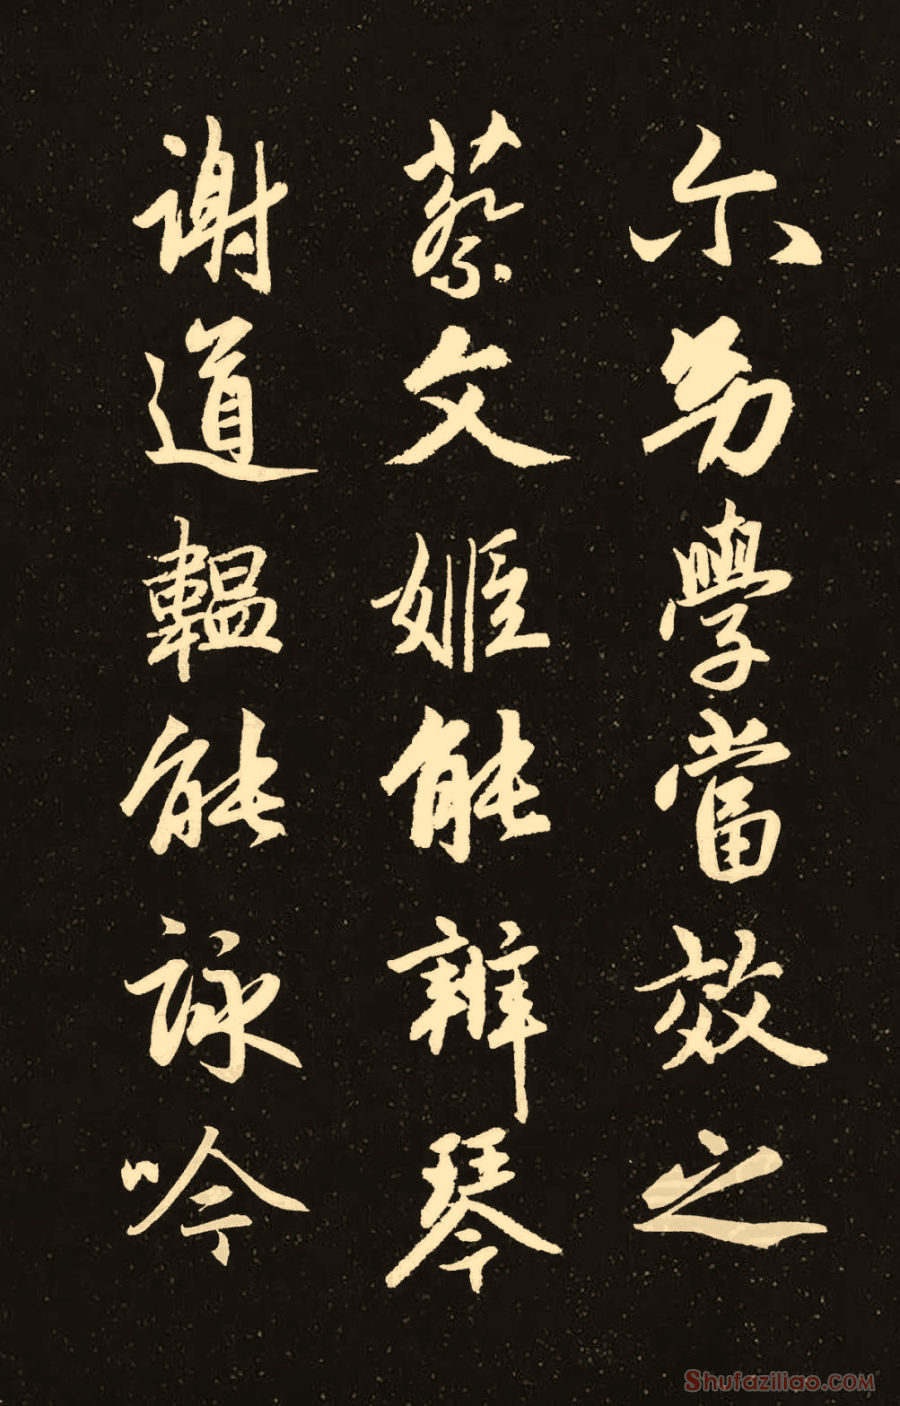 尒幼學當效之
蔡文姬能辨琴
謝道韞能詠吟
Shufaziliao.com